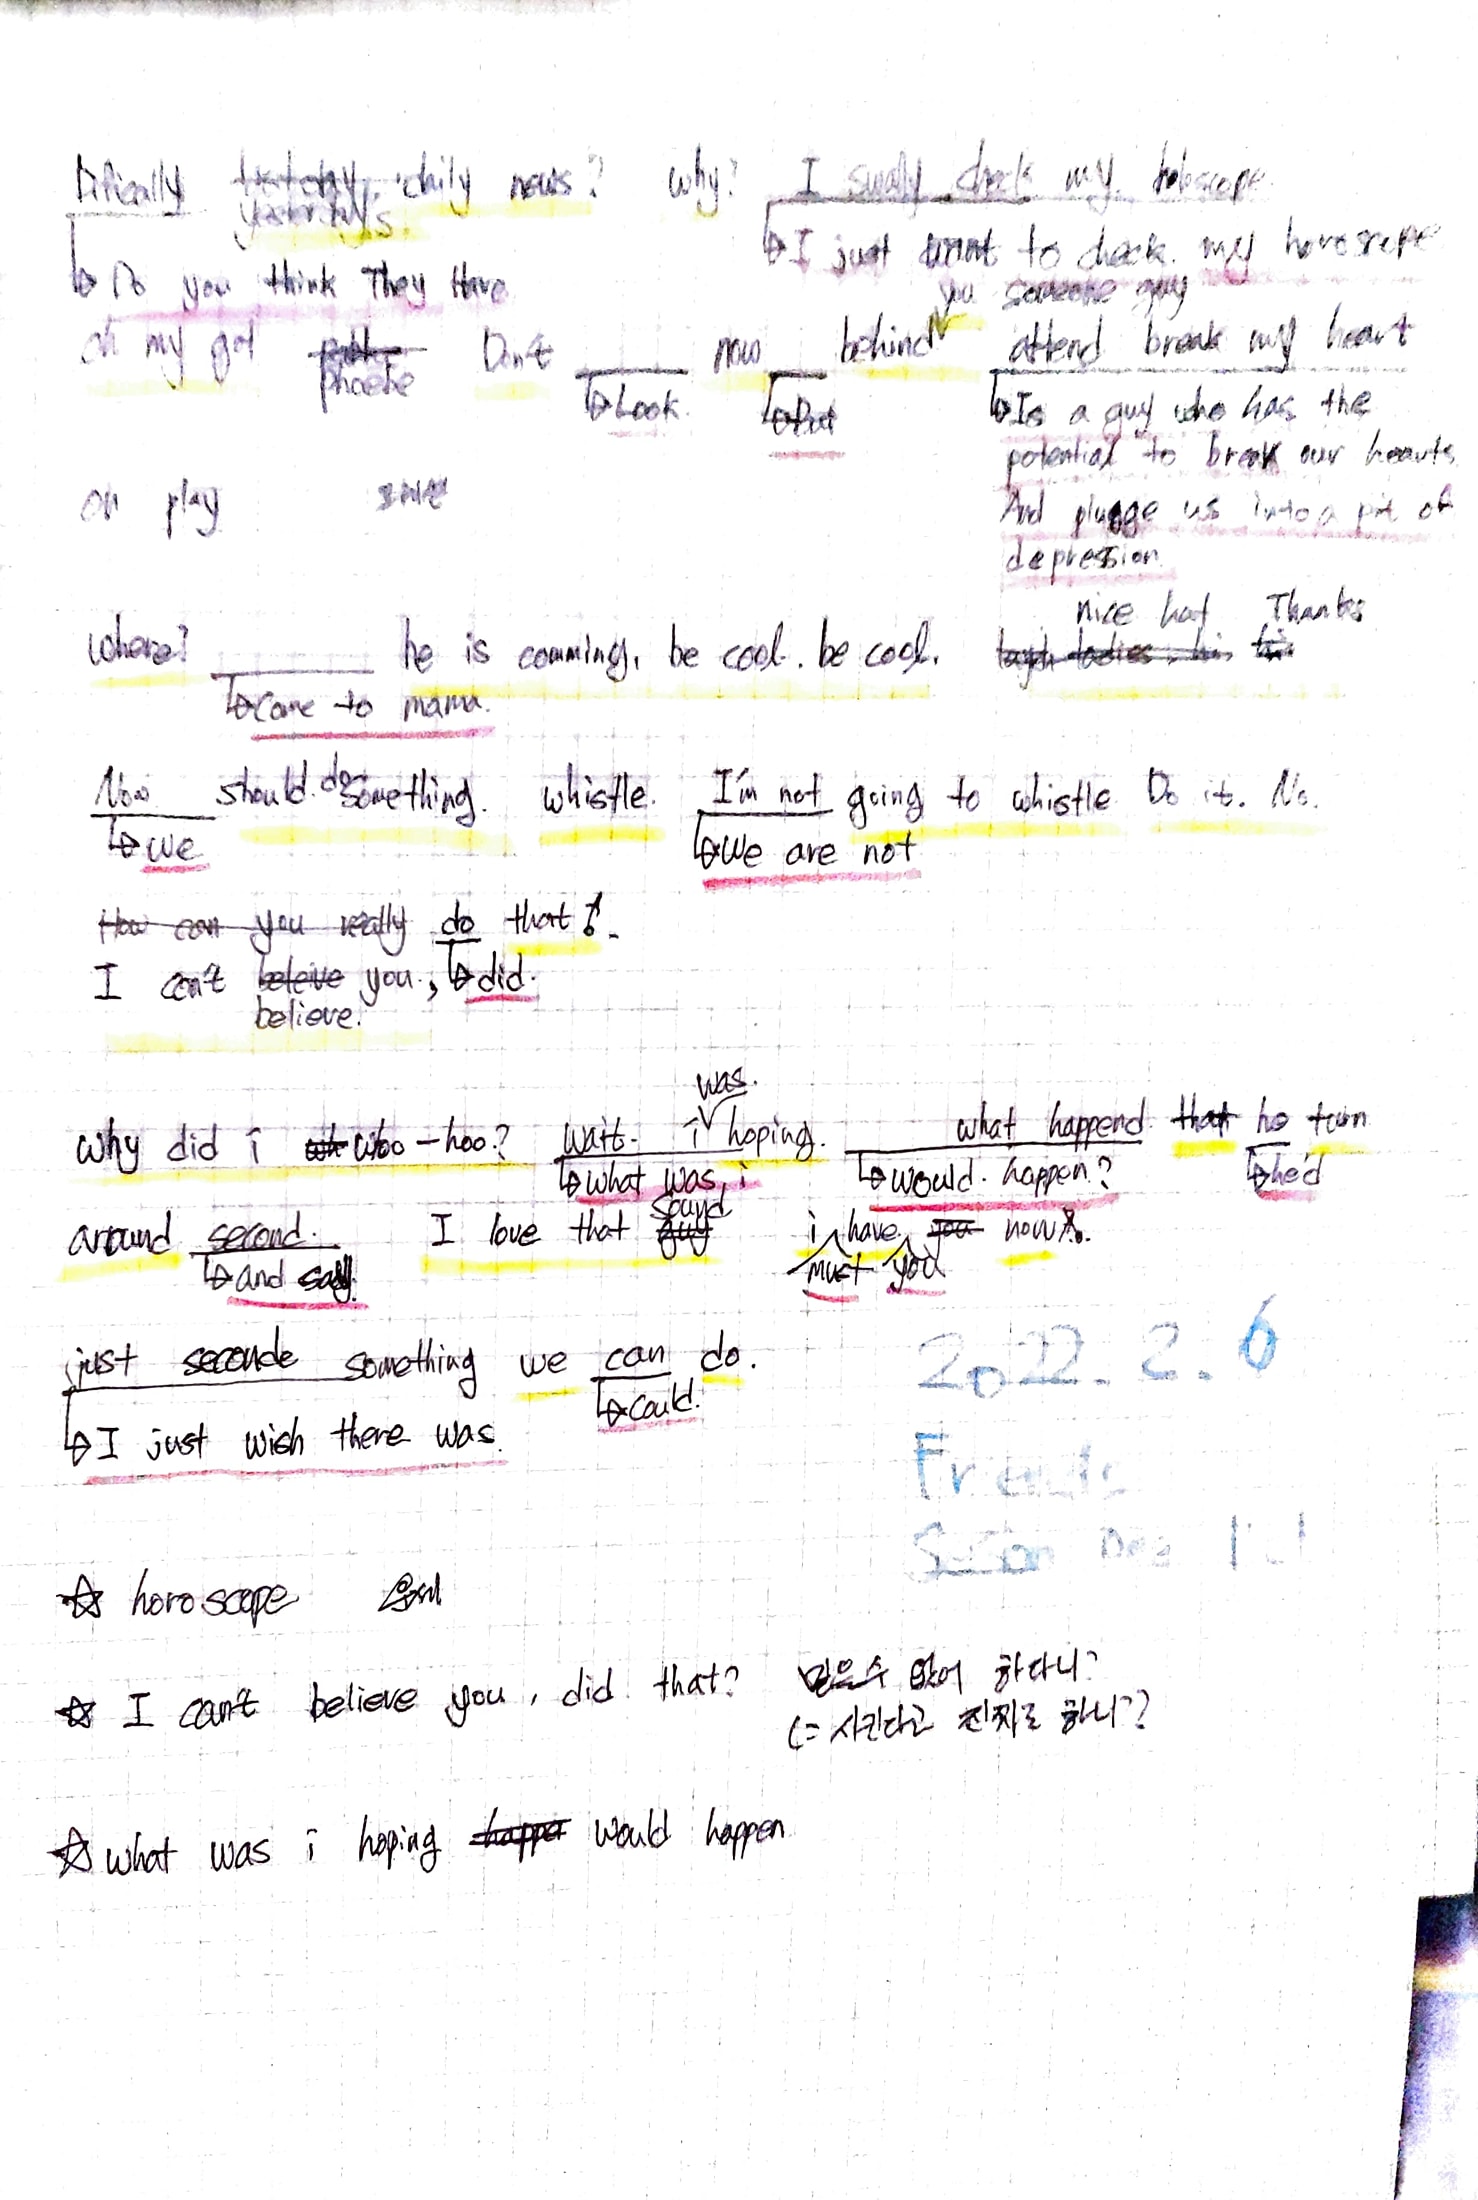 daily news? why? I check my
yesterday's.
I just want to check my horoscope
Do you think They Have
you someone guy
oh my got Don't now behind attend break my heart
phoebe
Look. But Is a guy who has the
potential to break our hearts
oh play And plugge us into a pit of
depression.
nice hat Thanks
where? he is comming, be cool. be cool.
come to mama.
Now should do something. whistle. I'm not going to whistle Do it. No.
we we are not
How can you really do that?
I can't beleive you, did.
believe.
was.
why did i woo-hoo? wait. i hoping. what happend that he turn
what was i would happen? he'd
sound
around second. I love that guy i have you now.
and say. must you
just seconde something we can do.
2022. 2. 6
could.
I just wish there was.
Friends
☆ horoscope 운세
☆ I can't believe you, did that? 믿을수 없어 하다니?
(= 시킨다고 진짜로 하니?
☆ what was i hoping would happen